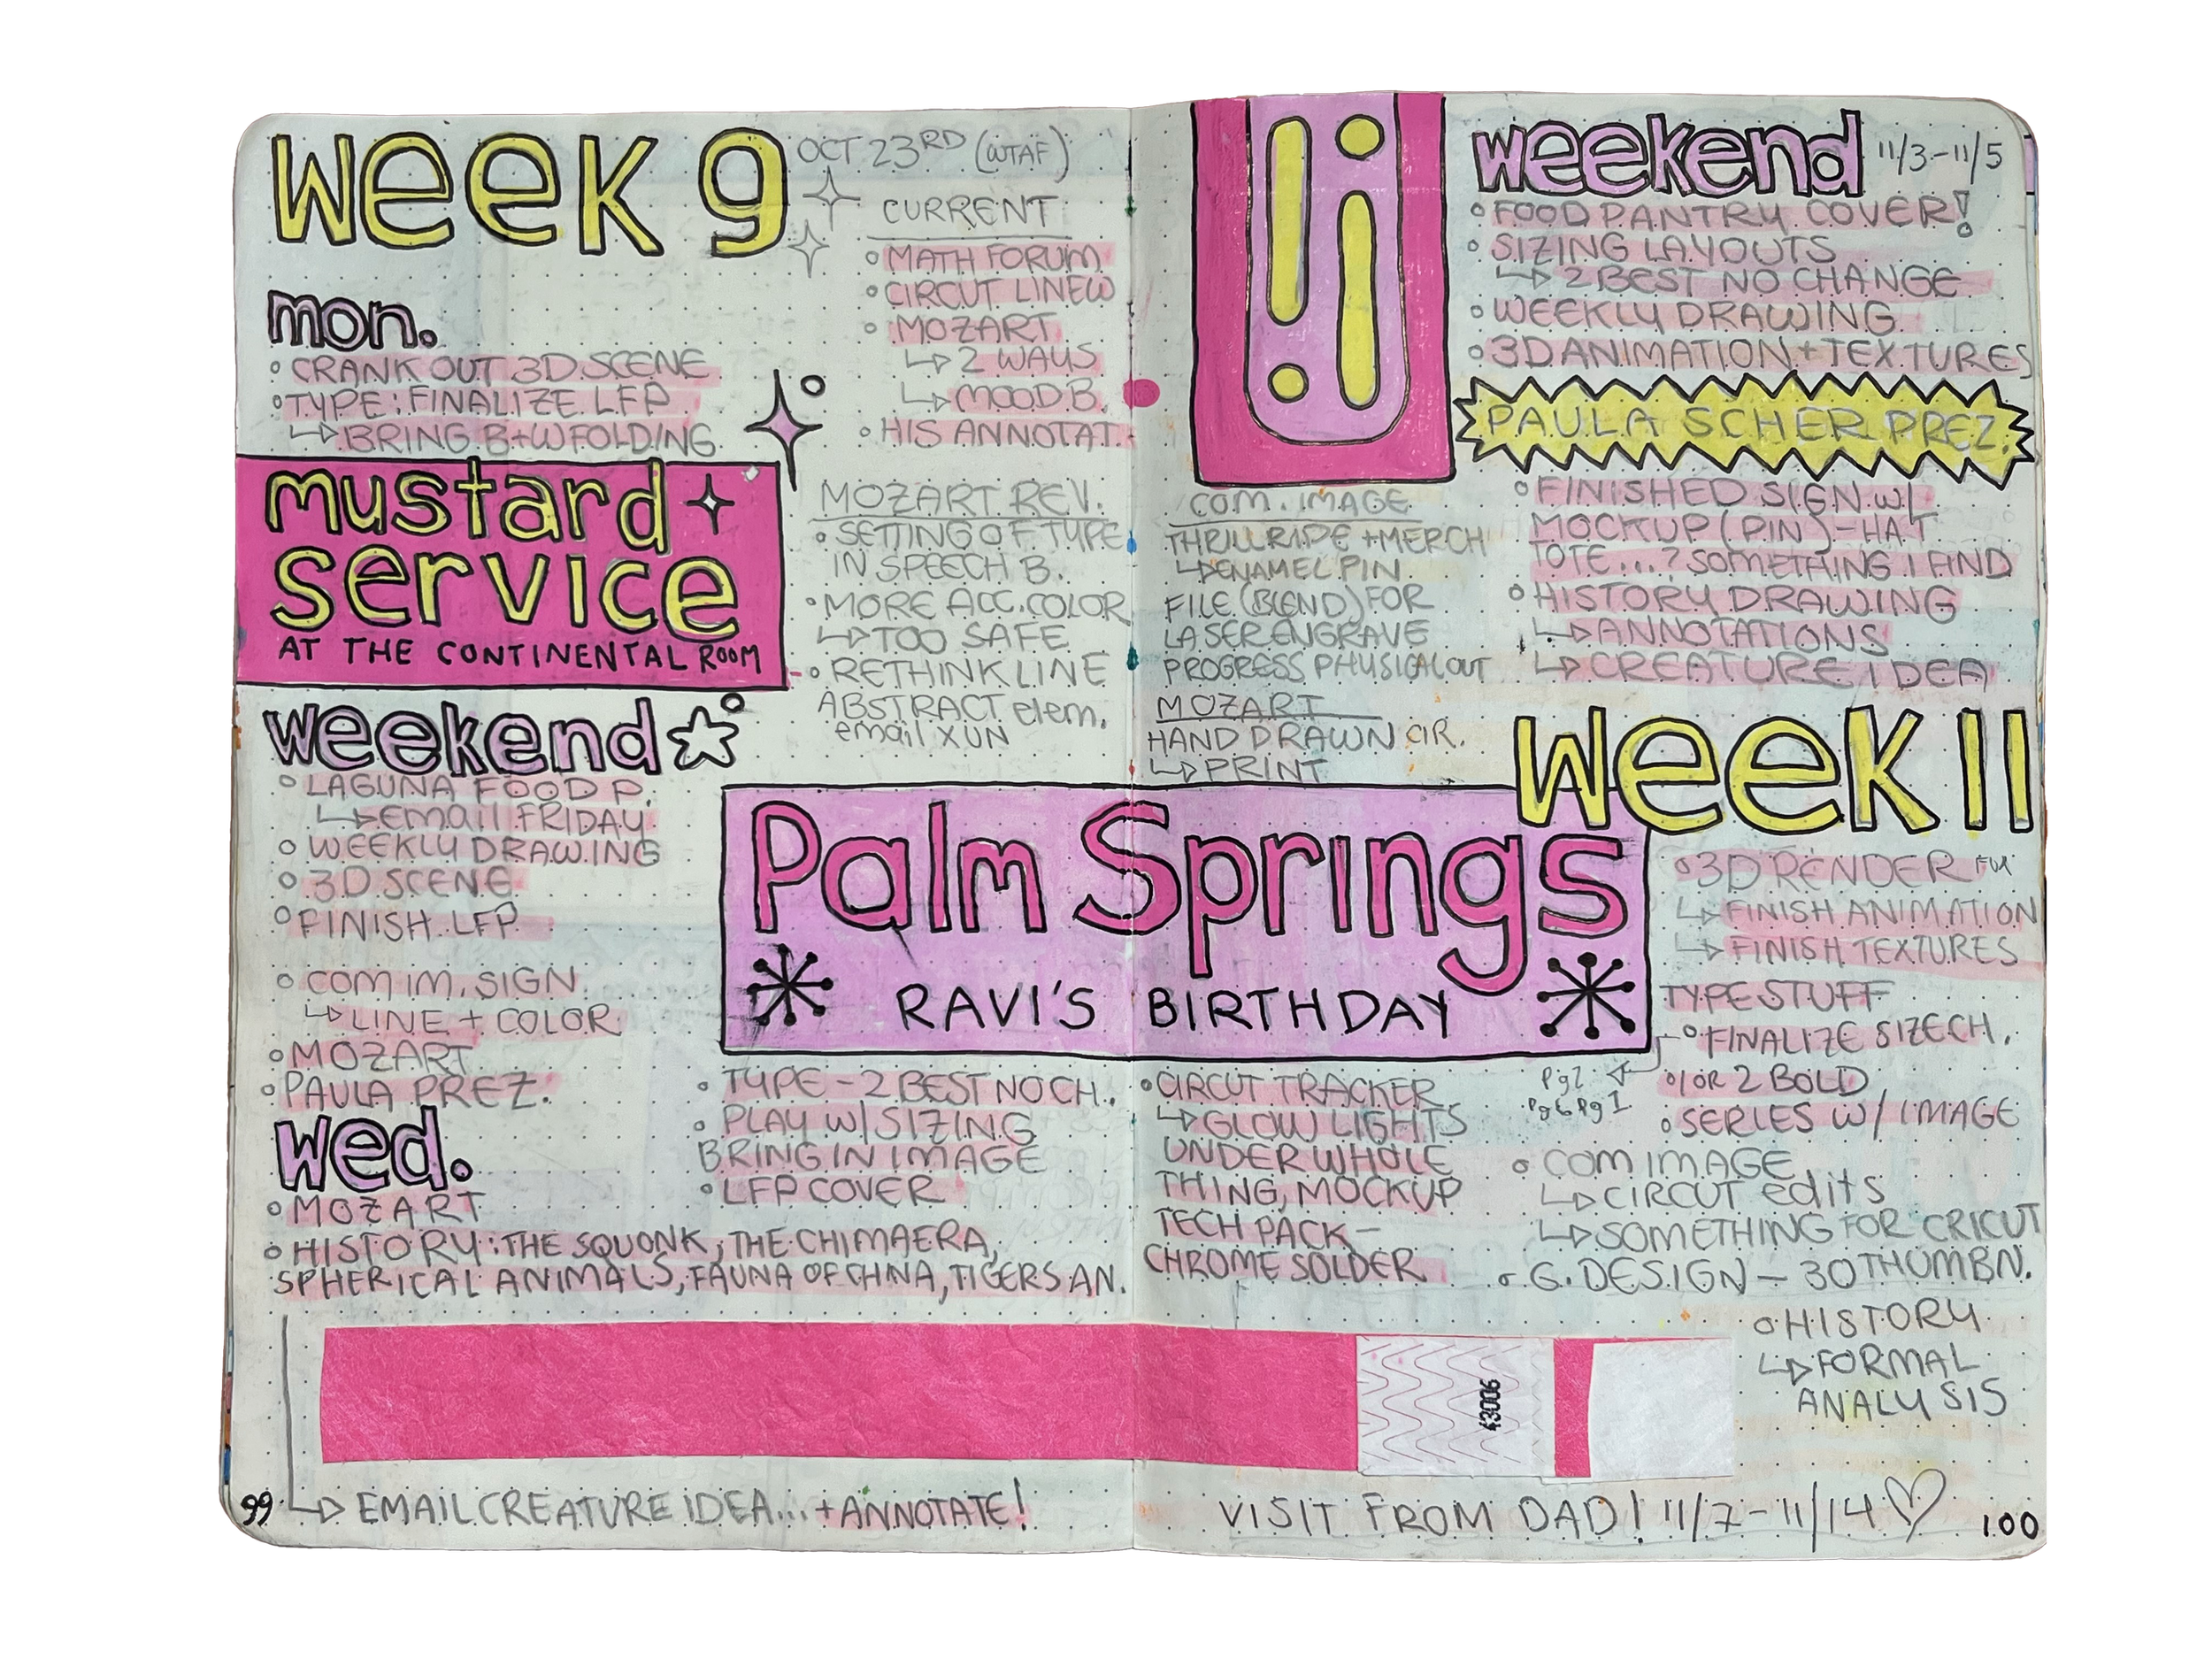 Week 9
OCT 23RD (WTAF)
mon.
CRANK OUT 3D SCENE
TYPE: FINALIZE LFP
BRING B+W FOLDING
mustard
service
AT THE CONTINENTAL ROOM
weekend
LAGUNA FOOD P.
email FRIDAY
WEEKLY DRAWING
3D SCENE
FINISH LFP
COM IM. SIGN
LINE + COLOR
MOZART
PAULA PREZ.
wed.
MOZART
HISTORY: THE SQUONK, THE CHIMAERA,
SPHERICAL ANIMALS, FAUNA OF CHINA, TIGERS AN.
CURRENT
MATH FORUM
CIRCUT LINEW
MOZART
2 WAYS
MOOD B.
HIS ANNOTAT.
MOZART REV.
SETTING OF TYPE
IN SPEECH B.
MORE ACC. COLOR
TOO SAFE
RETHINK LINE
ABSTRACT elem.
email XUN
Palm Springs
RAVI'S BIRTHDAY
TYPE - 2 BEST NO CH.
PLAY W/ SIZING
BRING IN IMAGE
LFP COVER
EMAIL CREATURE IDEA... + ANNOTATE!
99
COM. IMAGE
THRILL RIDE + MERCH
ENAMEL PIN
FILE (BLEND) FOR
LASER ENGRAVE
PROGRESS PHYSICAL OUT
MOZART
HAND DRAWN CIR.
PRINT
CIRCUT TRACKER
GLOW LIGHTS
UNDER WHOLE
THING, MOCKUP
TECH PACK -
CHROME SOLDER
weekend 11/3-11/5
FOOD PANTRY COVER!
SIZING LAYOUTS
2 BEST NO CHANGE
WEEKLY DRAWING
3D ANIMATION + TEXTURES
PAULA SCHER PREZ.
FINISHED SIGN w/
MOCKUP (PIN) - HAT
TOTE...? SOMETHING I FIND
HISTORY DRAWING
ANNOTATIONS
CREATURE IDEA
Week 11
3D RENDER
FINISH ANIMATION
FINISH TEXTURES
TYPE STUFF
FINALIZE SIZE CH.
1 OR 2 BOLD
SERIES W/ IMAGE
COM IMAGE
CIRCUT edits
SOMETHING FOR CRICUT
G. DESIGN - 30 THUMBN.
HISTORY
FORMAL
ANALYSIS
43006
VISIT FROM DAD! 11/7-11/14
100